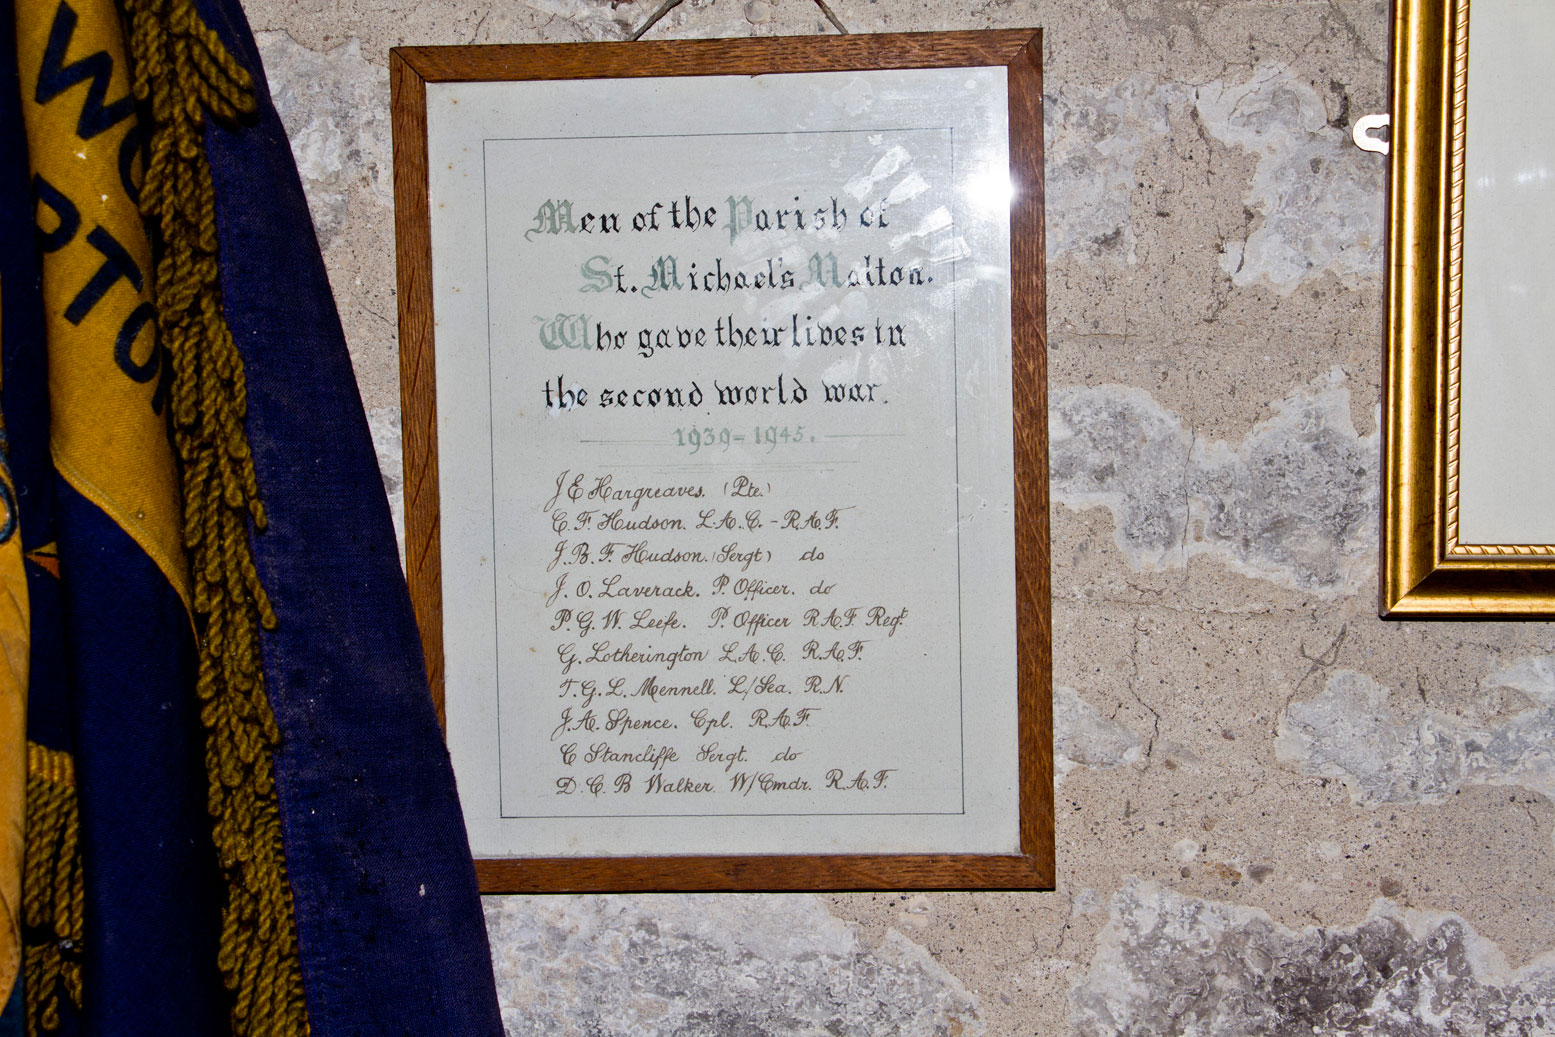 Men of the Parish of
St. Michael's Malton.
Who gave their lives in
the second world war.
1939-1945.
J E Hargreaves. (Pte.)
C. F. Hudson. L.A.C. - R.A.F.
J. B. F. Hudson. (Sergt) do
J. O. Laverack. P. Officer. do
P. G. W. Leefe. P. Officer R.A.F Regt
G. Lotherington L.A.C. R.A.F.
T. G. L. Mennell. L/Sea. R.N.
J. A. Spence. Cpl. R.A.F.
C Stancliffe Sergt. do
D. C. B Walker. W/Cmdr. R.A.F.